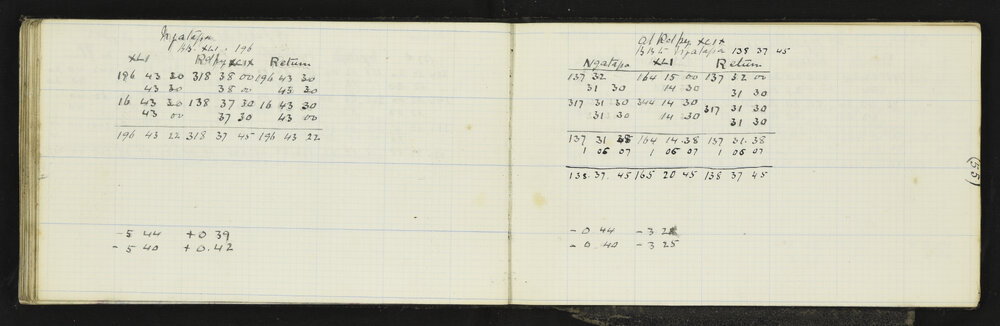 Ngatapa
BB. XLI. 196
XLI Rdpeg XLIX Return
196 43 20 318 38 00 196 43 30
43 30 38 00 43 30
16 43 30 138 37 30 16 43 30
43 00 37 30 43 00
196 43 22 318 37 45 196 43 22
-5 44 +0 39
-5 40 +0.42
at Rdpeg XLIX
Ngatapa 138 37 45
Ngatapa XLI Return
137 32 164 15 00 137 32 00
31 30 14 30 31 30
317 31 30 344 14 30 317 31 30
31 30 14 30 31 30
137 31 38 164 14.38 137 31.38
1 06 07 1 06 07 1 06 07
138.37.45 165 20 45 138 37 45
-0 44 -3
-0.40 -3 25
(55)